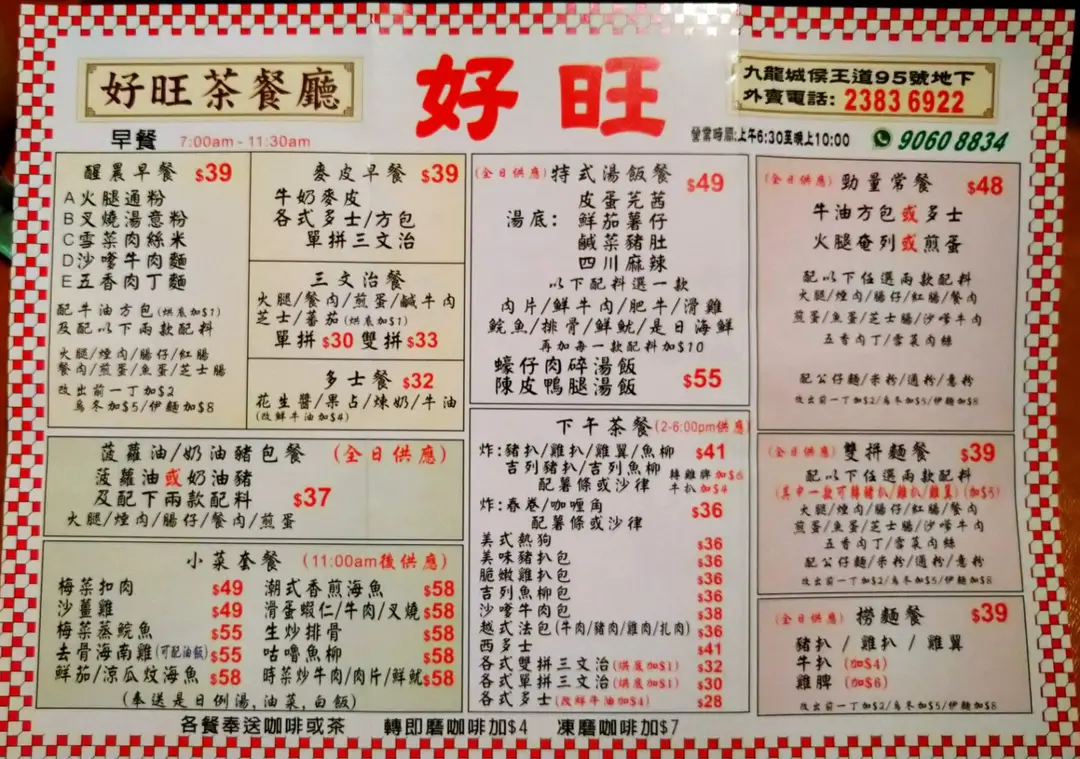 好旺茶餐廳
好旺
九龍城侯王道95號地下
外賣電話: 2383 6922
營業時間:上午6:30至晚上10:00
9060 8834
早餐 7:00am - 11:30am
醒晨早餐 $39
A火腿通粉
B叉燒湯意粉
C雪菜肉絲米
D沙嗲牛肉麵
E五香肉丁麵
配牛油方包(烘底加$1)
及配以下兩款配料
火腿/煙肉/腸仔/紅腸
餐肉/煎蛋/魚蛋/芝士腸
改出前一丁加$2
烏冬加$5/伊麵加$8
麥皮早餐 $39
牛奶麥皮
各式多士/方包
單拼三文治
三文治餐
火腿/餐肉/煎蛋/鹹牛肉
芝士/蕃茄(烘底加$1)
單拼$30 雙拼$33
多士餐 $32
花生醬/果占/煉奶/牛油
(改鮮牛油加$4)
菠蘿油/奶油豬包餐 (全日供應)
菠蘿油或奶油豬
及配下兩款配料 $37
火腿/煙肉/腸仔/餐肉/煎蛋
小菜套餐 (11:00am後供應)
梅菜扣肉 $49
沙薑雞 $49
梅菜蒸鯇魚 $55
去骨海南雞(可配油飯) $55
鮮茄/涼瓜炆海魚 $58
潮式香煎海魚 $58
滑蛋蝦仁/牛肉/叉燒 $58
生炒排骨 $58
咕嚕魚柳 $58
時菜炒牛肉/肉片/鮮魷 $58
(奉送是日例湯,油菜,白飯)
(全日供應) 特式湯飯餐 $49
湯底: 皮蛋芫茜
鮮茄薯仔
鹹菜豬肚
四川麻辣
以下配料選一款
肉片/鮮牛肉/肥牛/滑雞
鯇魚/排骨/鮮魷/是日海鮮
再加每一款配料加$10
蠔仔肉碎湯飯
陳皮鴨腿湯飯 $55
下午茶餐 (2-6:00pm供應)
炸:豬扒/雞扒/雞翼/魚柳 $41
吉列豬扒/吉列魚柳 轉雞脾加$6
配薯條或沙律 牛扒加$4
炸:春卷/咖喱角 $36
配薯條或沙律
美式熱狗 $36
美味豬扒包 $36
脆嫩雞扒包 $36
吉列魚柳包 $36
沙嗲牛肉包 $38
越式法包(牛肉/豬肉/雞肉/扎肉) $36
西多士 $41
各式雙拼三文治(烘底加$1) $32
各式單拼三文治(烘底加$1) $30
各式多士(改鮮牛油加$4) $28
(全日供應) 勁量常餐 $48
牛油方包或多士
火腿奄列或煎蛋
配以下任選兩款配料
火腿/煙肉/腸仔/紅腸/餐肉
煎蛋/魚蛋/芝士腸/沙嗲牛肉
五香肉丁/雪菜肉絲
配公仔麵/米粉/通粉/意粉
改出前一丁加$2/烏冬加$5/伊麵加$8
(全日供應) 雙拼麵餐 $39
配以下任選兩款配料
(其中一款可轉豬扒/雞扒/雞翼)(加$3)
火腿/煙肉/腸仔/紅腸/餐肉
煎蛋/魚蛋/芝士腸/沙嗲牛肉
五香肉丁/雪菜肉絲
配公仔麵/米粉/通粉/意粉
改出前一丁加$2/烏冬加$5/伊麵加$8
(全日供應) 撈麵餐 $39
豬扒 / 雞扒 / 雞翼
牛扒 (加$4)
雞脾 (加$6)
改出前一丁加$2/烏冬加$5/伊麵加$8
各餐奉送咖啡或茶 轉即磨咖啡加$4 凍磨咖啡加$7